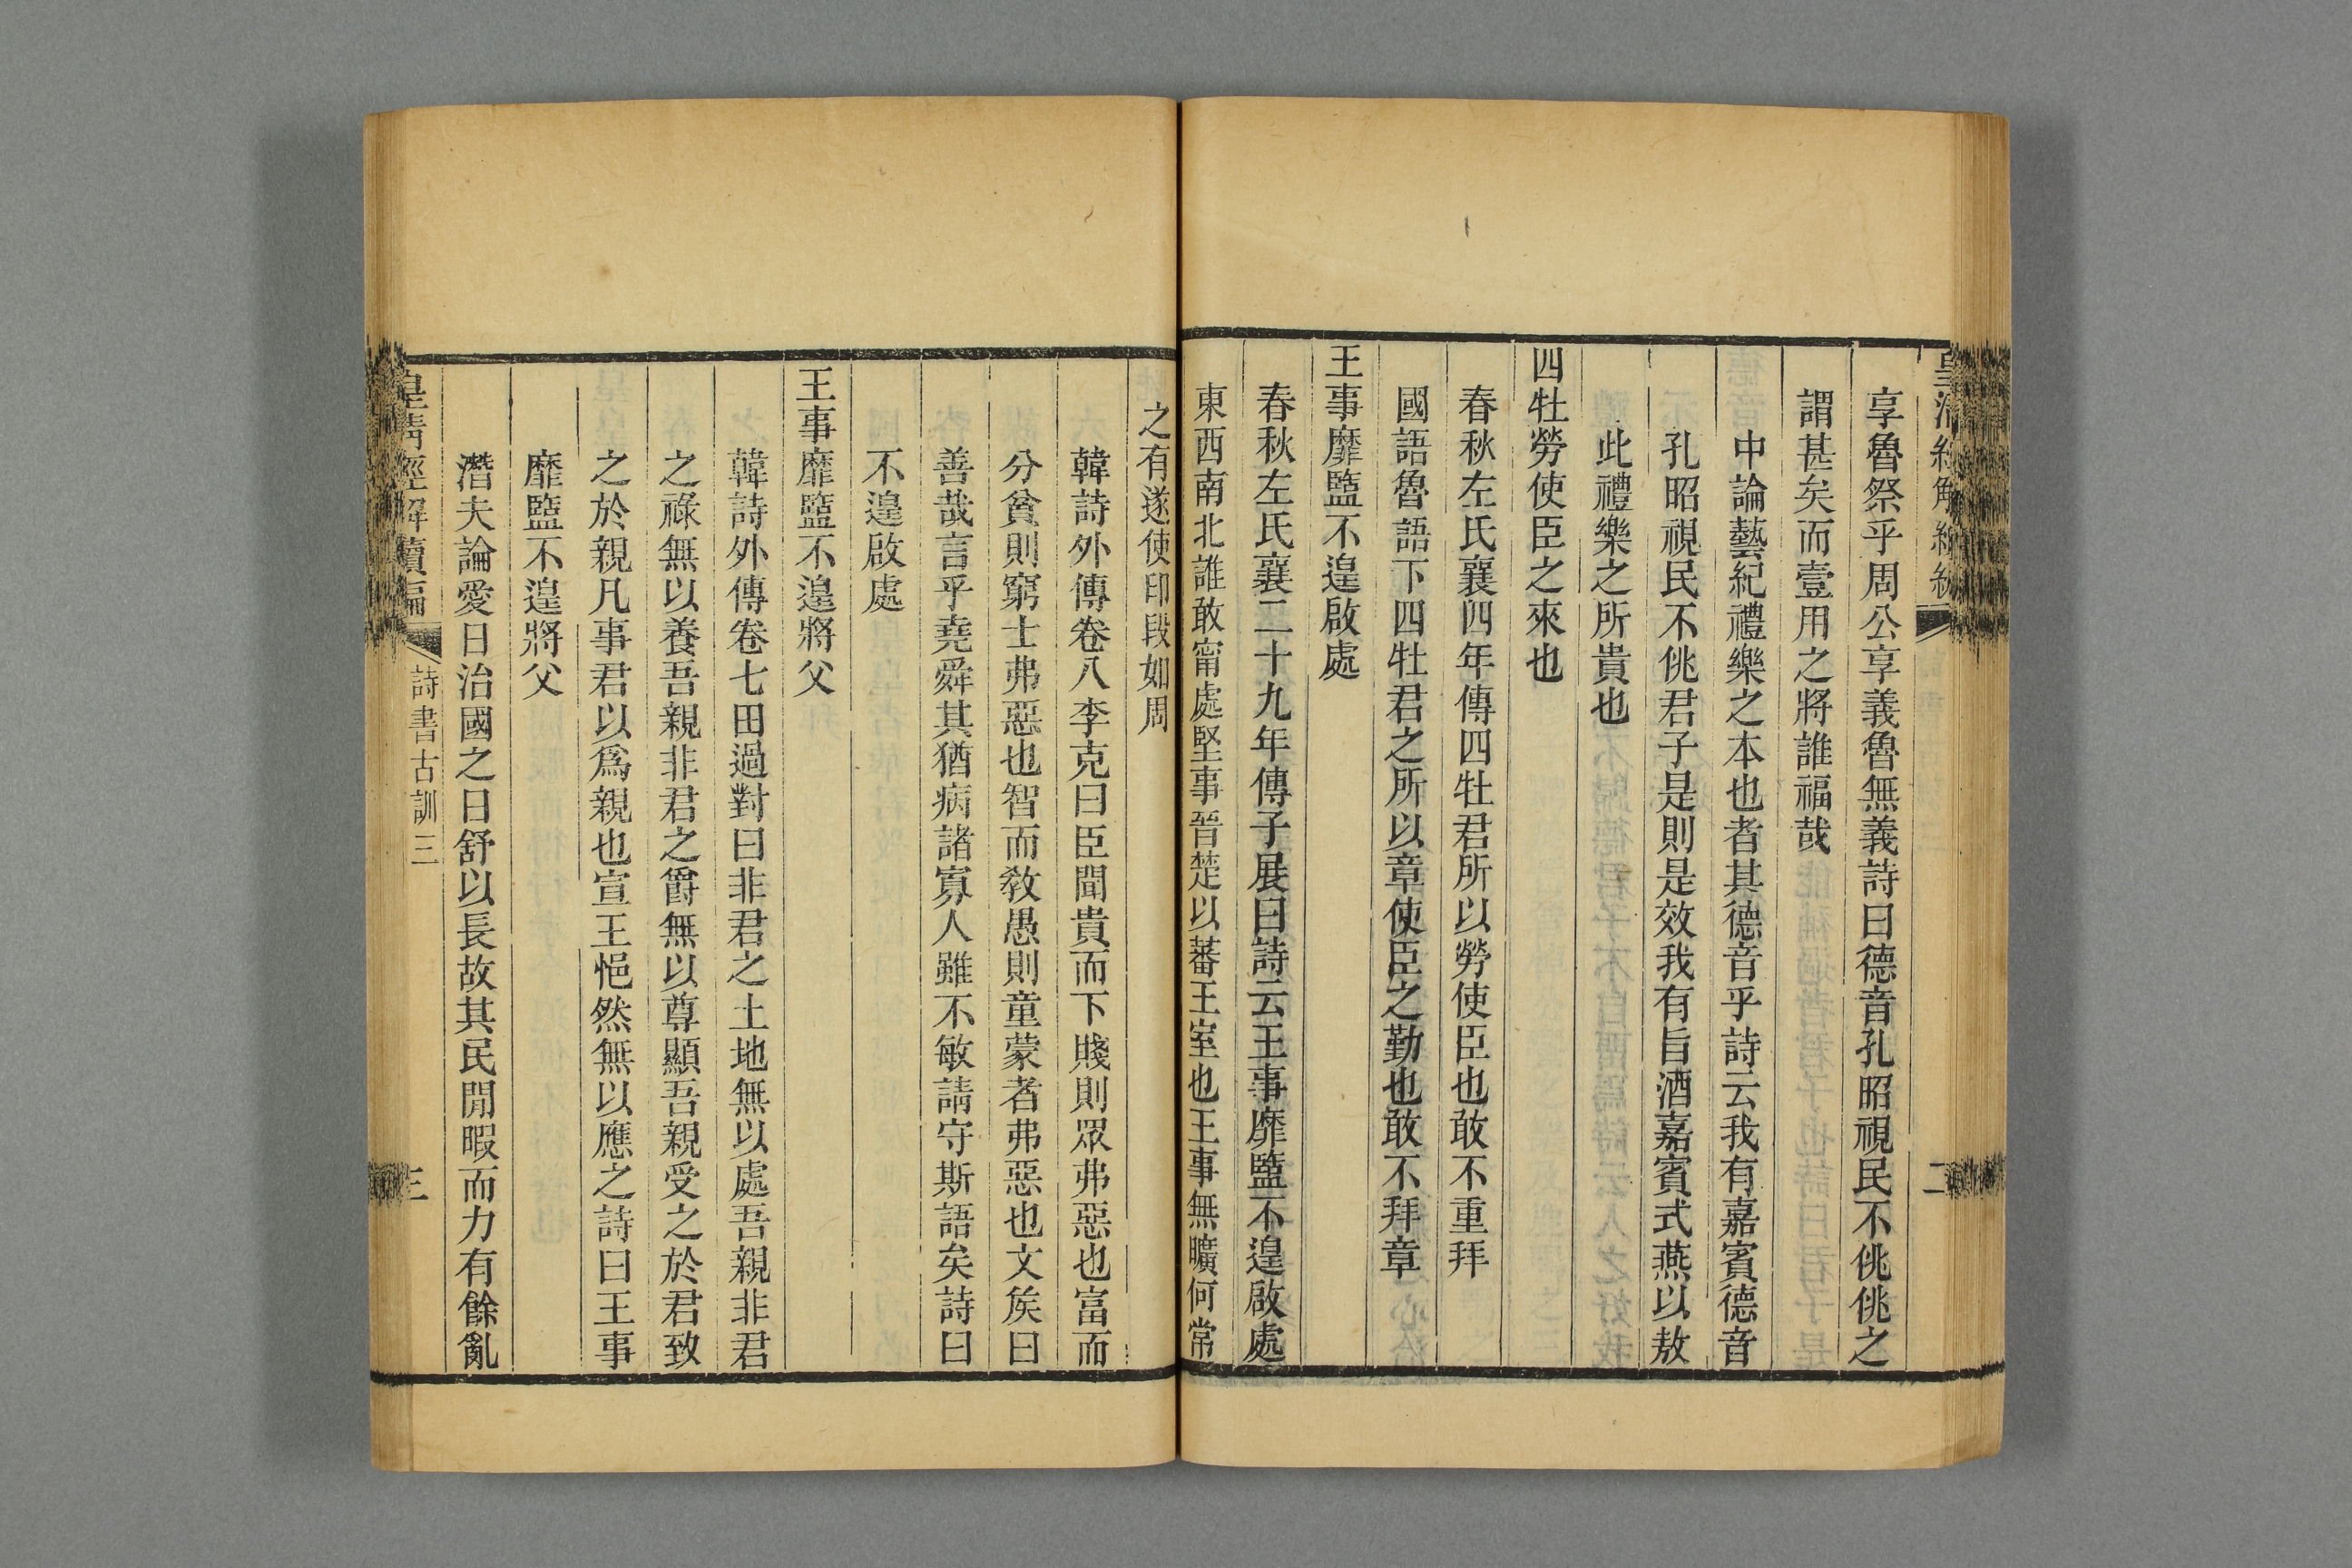 享魯祭乎周公享義魯無義詩曰德音孔昭視民不佻佻之
謂甚矣而壹用之將誰福哉
中論藝紀禮樂之本也者其德音乎詩云我有嘉賓德音
孔昭視民不佻君子是則是效我有旨酒嘉賓式燕以敖
此禮樂之所貴也
四牡勞使臣之來也
春秋左氏襄四年傳四牡君所以勞使臣也敢不重拜
國語魯語下四牡君之所以章使臣之勤也敢不拜章
王事靡盬不遑啟處
春秋左氏襄二十九年傳子展曰詩云王事靡盬不遑啟處
東西南北誰敢甯處堅事晉楚以蕃王室也王事無曠何常
之有遂使印段如周
韓詩外傳卷八李克曰臣聞貴而下賤則眾弗惡也富而
分貧則窮士弗惡也智而教愚則童蒙者弗惡也文矦曰
善哉言乎堯舜其猶病諸寡人雖不敏請守斯語矣詩曰
不遑啟處
王事靡盬不遑將父
韓詩外傳卷七田過對曰非君之土地無以處吾親非君
之祿無以養吾親非君之爵無以尊顯吾親受之於君致
之於親凡事君以爲親也宣王悒然無以應之詩曰王事
靡盬不遑將父
潛夫論愛日治國之日舒以長故其民閒暇而力有餘亂
皇清經解續編
詩書古訓三
三